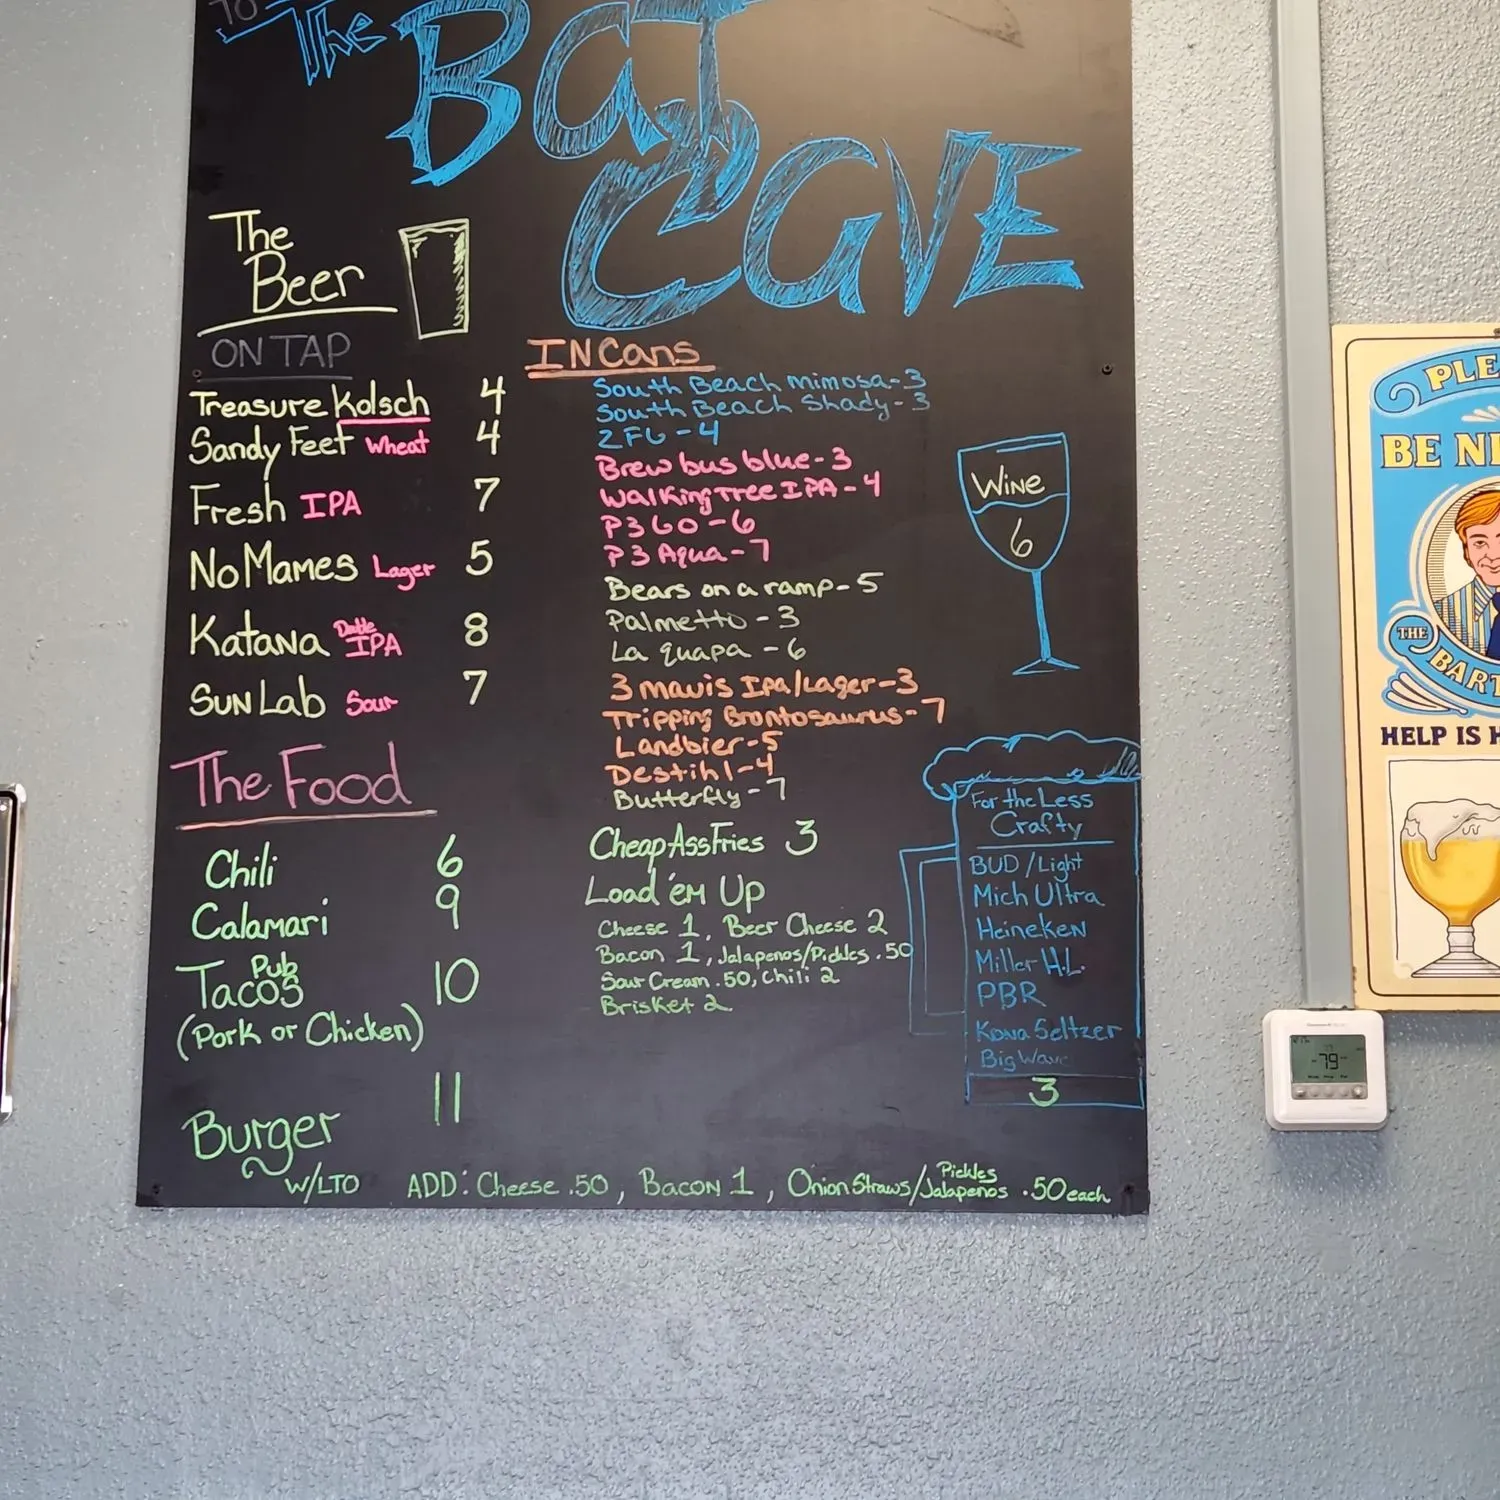 TO
The Bat
Cave
The
Beer
ON TAP
Treasure Kolsch 4
Sandy Feet Wheat 4
Fresh IPA 7
No Mames Lager 5
Katana Double IPA 8
Sun Lab Sour 7
The Food
Chili 6
Calamari 9
Pub
Tacos 10
(Pork or Chicken)
Burger 11
w/LTO
ADD: Cheese .50, Bacon 1, Onion Straws/Pickles Jalapenos .50 each
IN Cans
South Beach mimosa-3
South Beach Shady-3
2FG-4
Brew bus blue-3
Walking Tree IPA-4
P360-6
P3 Aqua-7
Bears on a ramp-5
Palmetto-3
La guapa-6
3 mavis Ipa/Lager-3
Tripping Brontosaurus-7
Landbier-5
Destihl-4
Butterfly-7
Cheap Ass Fries 3
Load 'em Up
Cheese 1, Beer Cheese 2
Bacon 1, Jalapenos/Pickles .50
Sour Cream .50, Chili 2
Brisket 2
Wine
6
For the Less
Crafty
BUD/Light
Mich Ultra
Heineken
Miller H.L.
PBR
Kona Seltzer
Big Wave
3
PLE
BE NI
THE
BART
HELP IS H
79